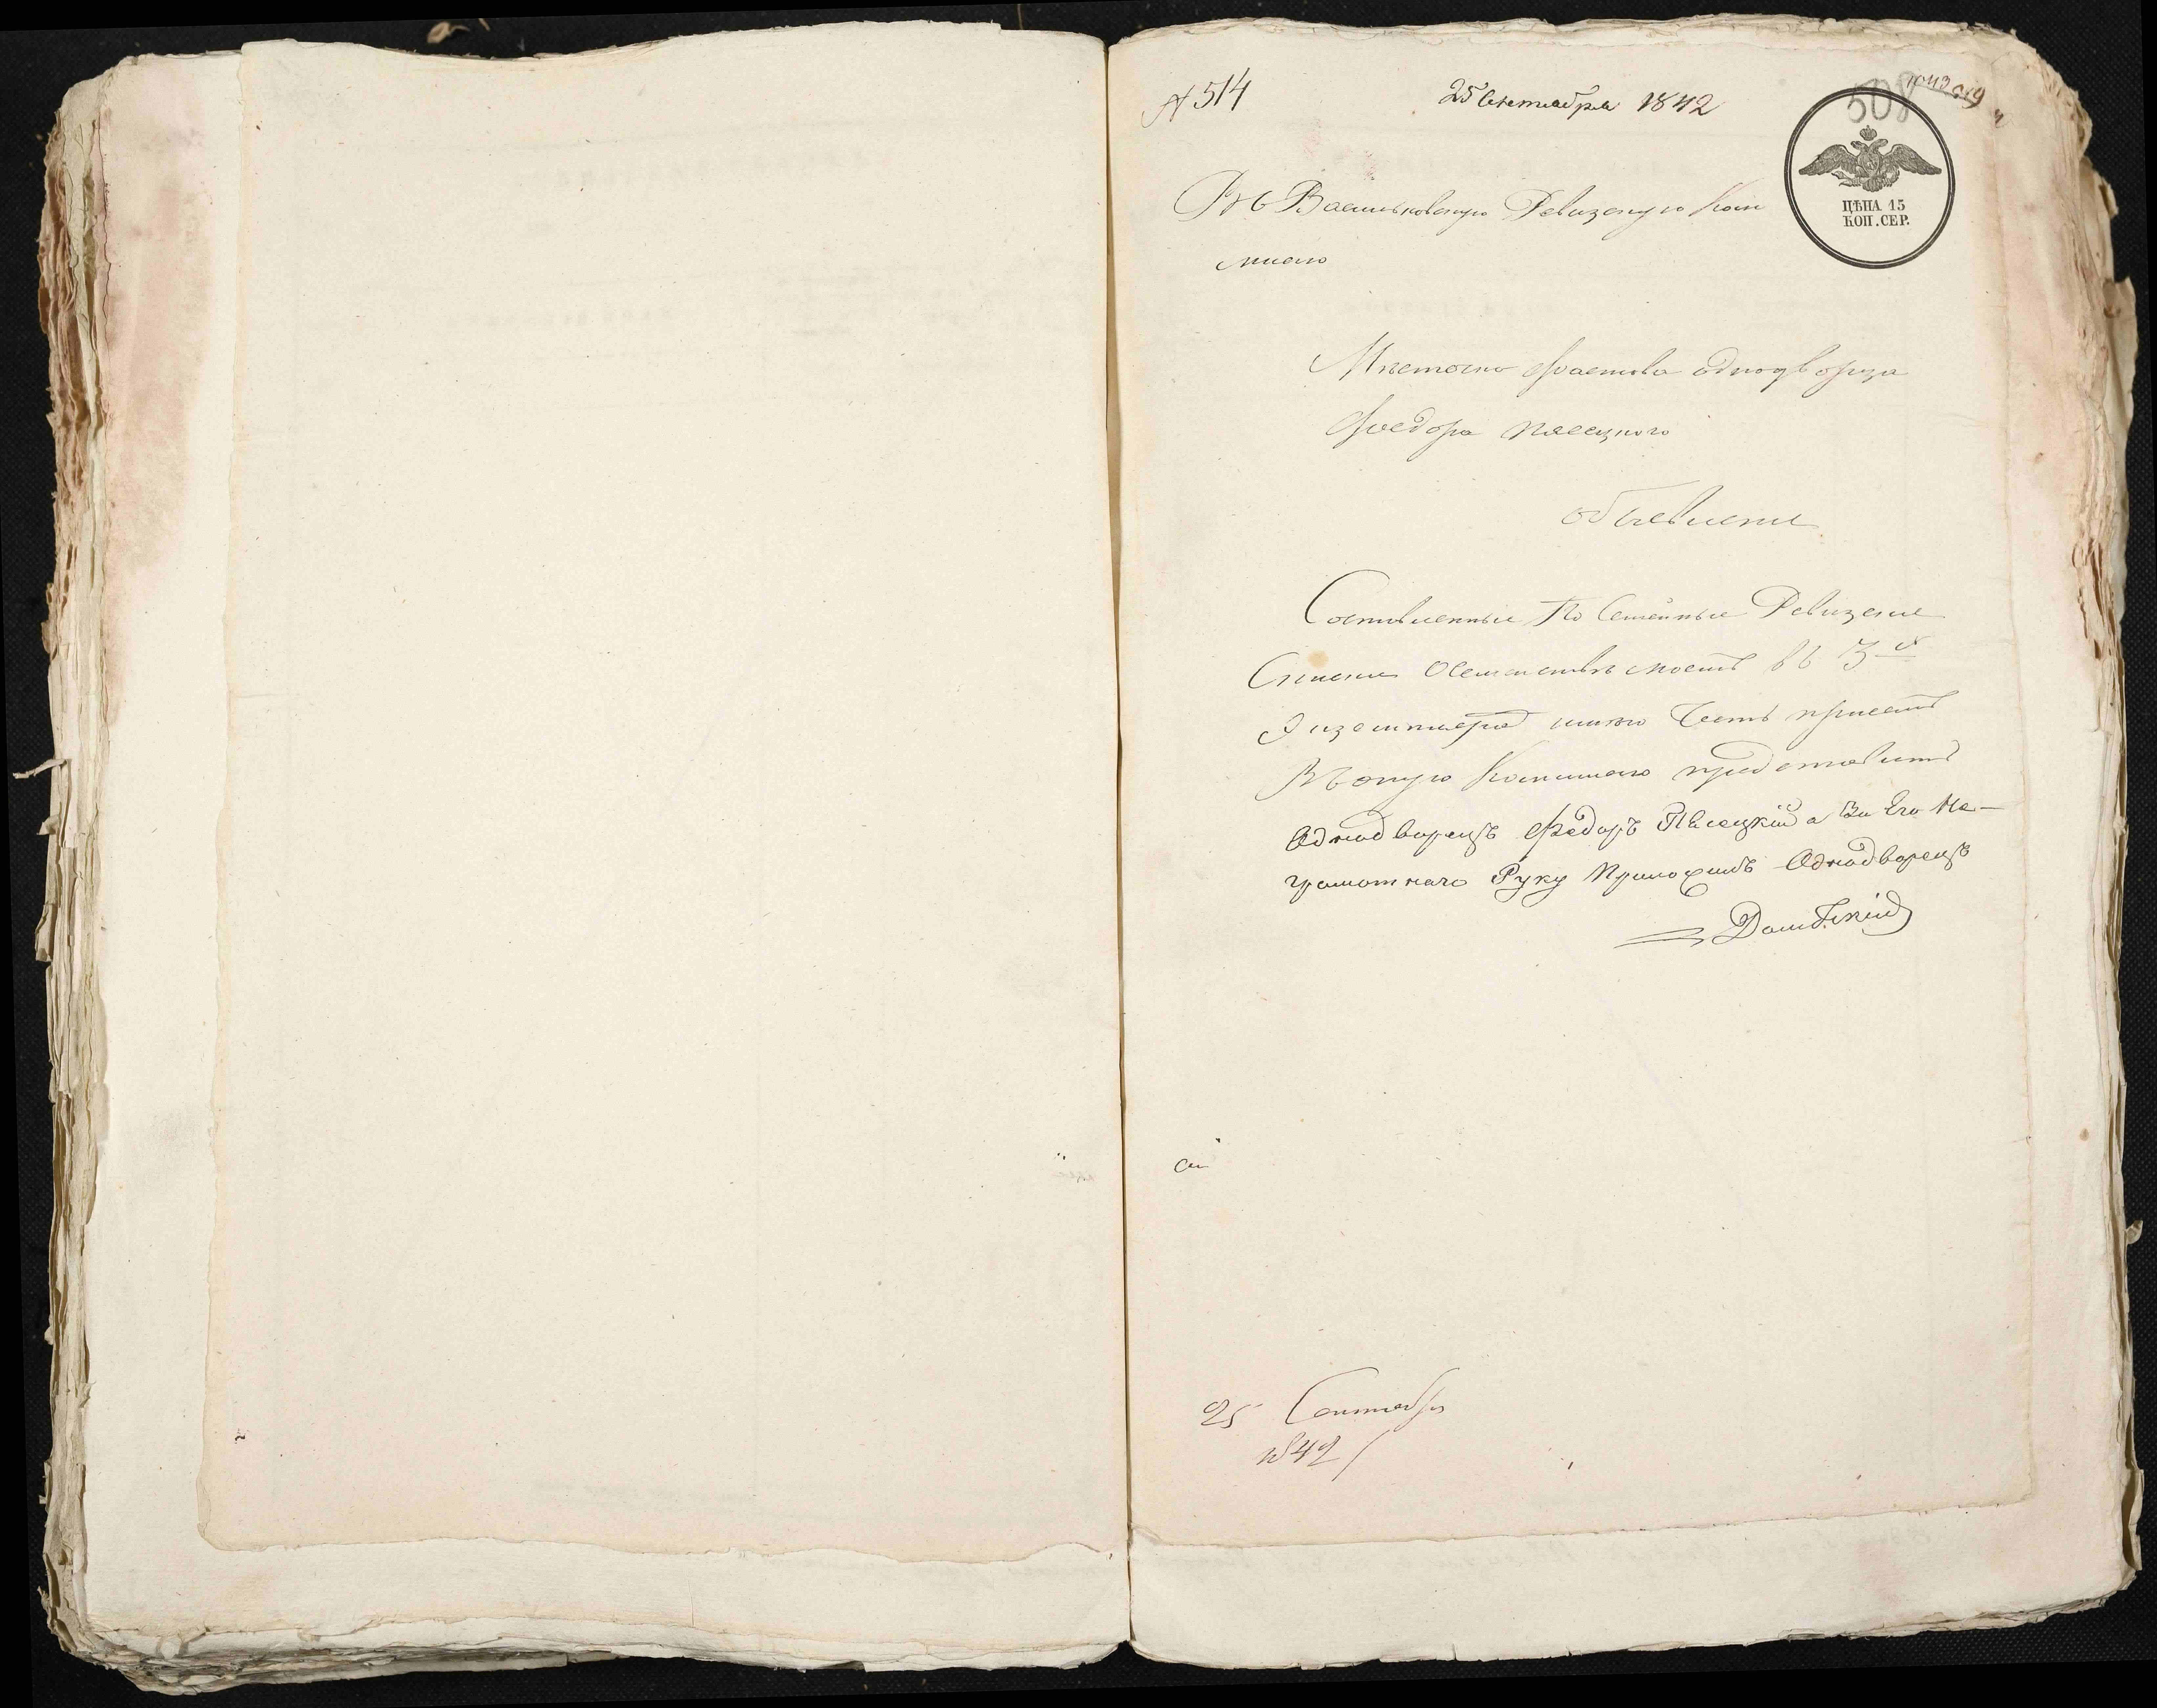 № 514
25 Сентября 1842
508
ЦѢНА 15
КОП. СЕР.
Въ Васильковскую Ревизскую Ком
мисію
Мѣстечка Фастова однодворца
Федора Пясецкого
объевление
Составленные По Семейные Ревизские
Списки О семействѣ моемъ въ 3х
Экземплярахъ имѣю Честь присемъ
Въ оную Коммисію представить
Однодворецъ Федоръ Пясецкій а За Его Не-
грамотнаго Руку Приложилъ Однодворецъ
Домбскій
25 Сентября
1842